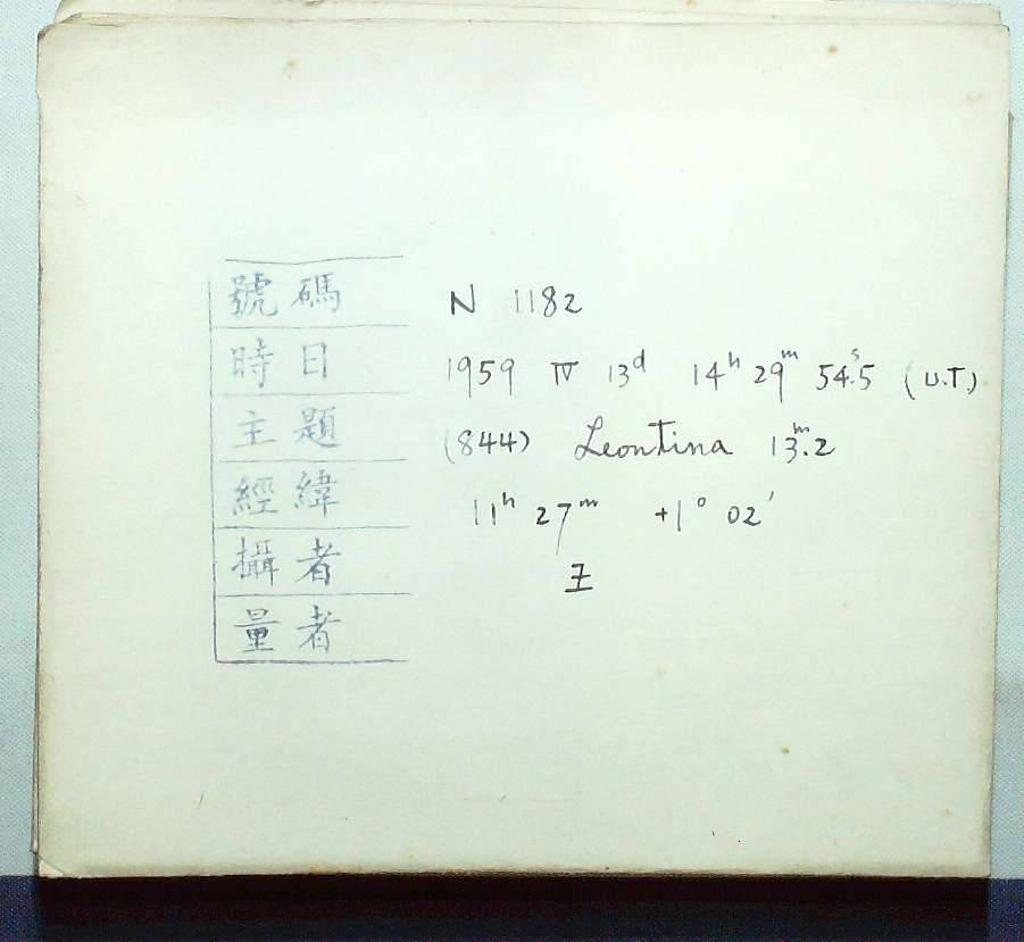 號碼 N 1182
時日 1959 IV 13ᵈ 14ʰ 29ᵐ 54ˢ.5 (U.T.)
主題 (844) Leontina 13ᵐ.2
經緯 11ʰ 27ᵐ +1° 02′
攝者 王
量者